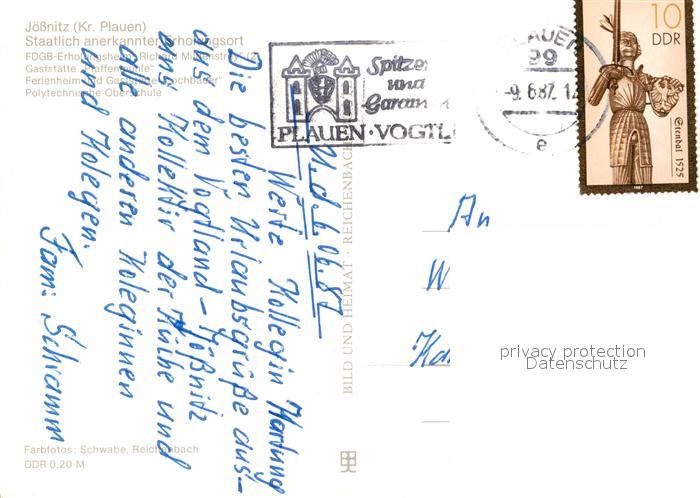 Jößnitz (Kr. Plauen)
Staatlich anerkannter Erholungsort
FDGB-Erholungsheim "Richard Mildenstrey" (2)
Gaststätte "Pfaffenmühle"
Ferienheim und Gaststätte "Hochbauer"
Polytechnische Oberschule
Spitze
und
Gard
PLAUEN · VOGTL
PLAUEN
99
-9.6.87.12
e
10
DDR
Stendal 1525
1987
d. 6.06.87
Werte Kollegin Hartung
Die besten Urlaubsgrüße aus-
aus dem Vogtland-Jößnitz
ans Kollektiv der Küche und
alle anderen Koleginnen
und Kolegen.
Fam. Schramm
An
W
Ka
BILD UND HEIMAT · REICHENBACH
Farbfotos: Schwabe, Reichenbach
DDR 0,20 M
privacy protection
Datenschutz